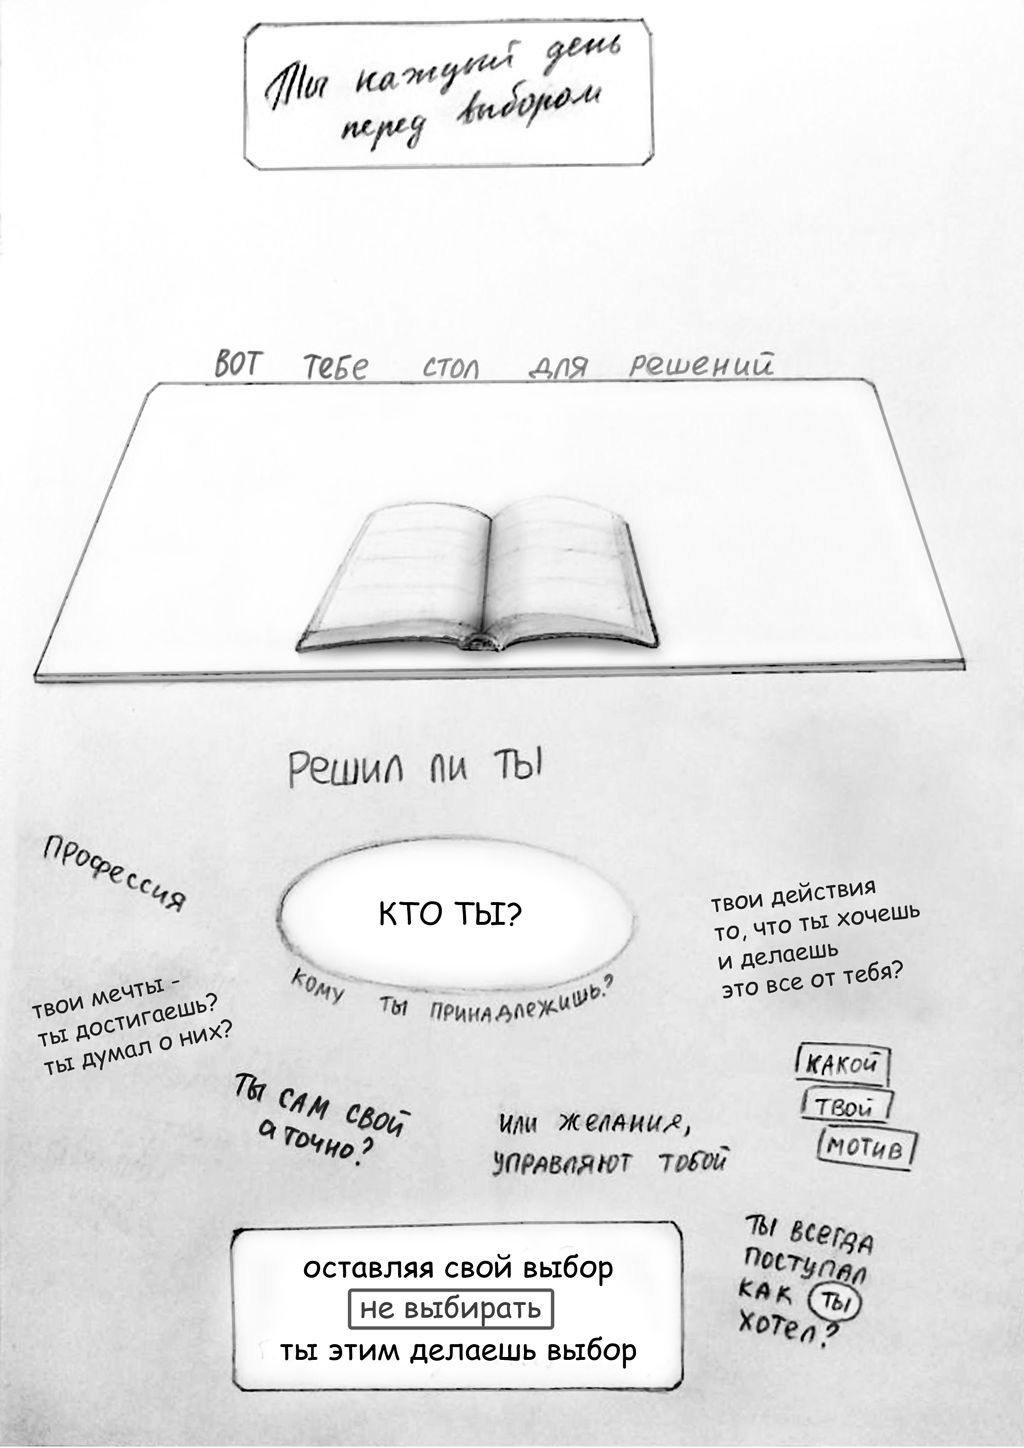 Ты каждый день
перед выбором
ВОТ ТЕБЕ СТОЛ ДЛЯ РЕШЕНИЙ
РЕШИЛ ЛИ ТЫ
ПРОФЕССИЯ
КТО ТЫ?
КОМУ ТЫ ПРИНАДЛЕЖИШЬ?
твои действия
то, что ты хочешь
и делаешь
это все от тебя?
твои мечты -
ты достигаешь?
ты думал о них?
ТЫ САМ СВОЙ
а точно?
ИЛИ ЖЕЛАНИЯ,
УПРАВЛЯЮТ ТОБОЙ
КАКОЙ
ТВОЙ
МОТИВ
ТЫ ВСЕГДА
ПОСТУПАЛ
КАК ТЫ
ХОТЕЛ?
оставляя свой выбор
не выбирать
ты этим делаешь выбор